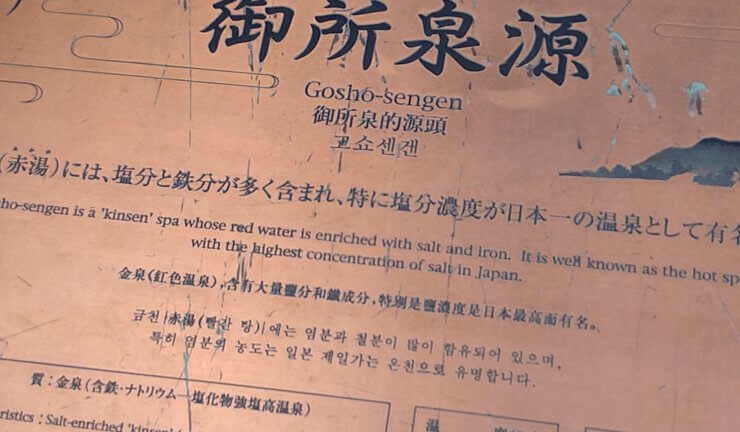 御所泉源
Gosho-sengen
御所泉的源頭
고쇼센갠
(赤湯)には、塩分と鉄分が多く含まれ、特に塩分濃度が日本一の温泉として有名
ho-sengen is a 'kinsen' spa whose red water is enriched with salt and iron. It is well known as the hot sp
with the highest concentration of salt in Japan.
金泉(紅色温泉),含有大量鹽分和鐵成分,特別是鹽濃度是日本最高而有名。
금천 (赤湯(빨간 탕)에는 염분과 철분이 많이 함유되어 있으며,
특히 염분의 농도는 일본 제일가는 온천으로 유명합니다.
質:金泉(含鉄・ナトリウム―塩化物強塩高温泉)
ristics : Salt-enriched 'kinsen'
温